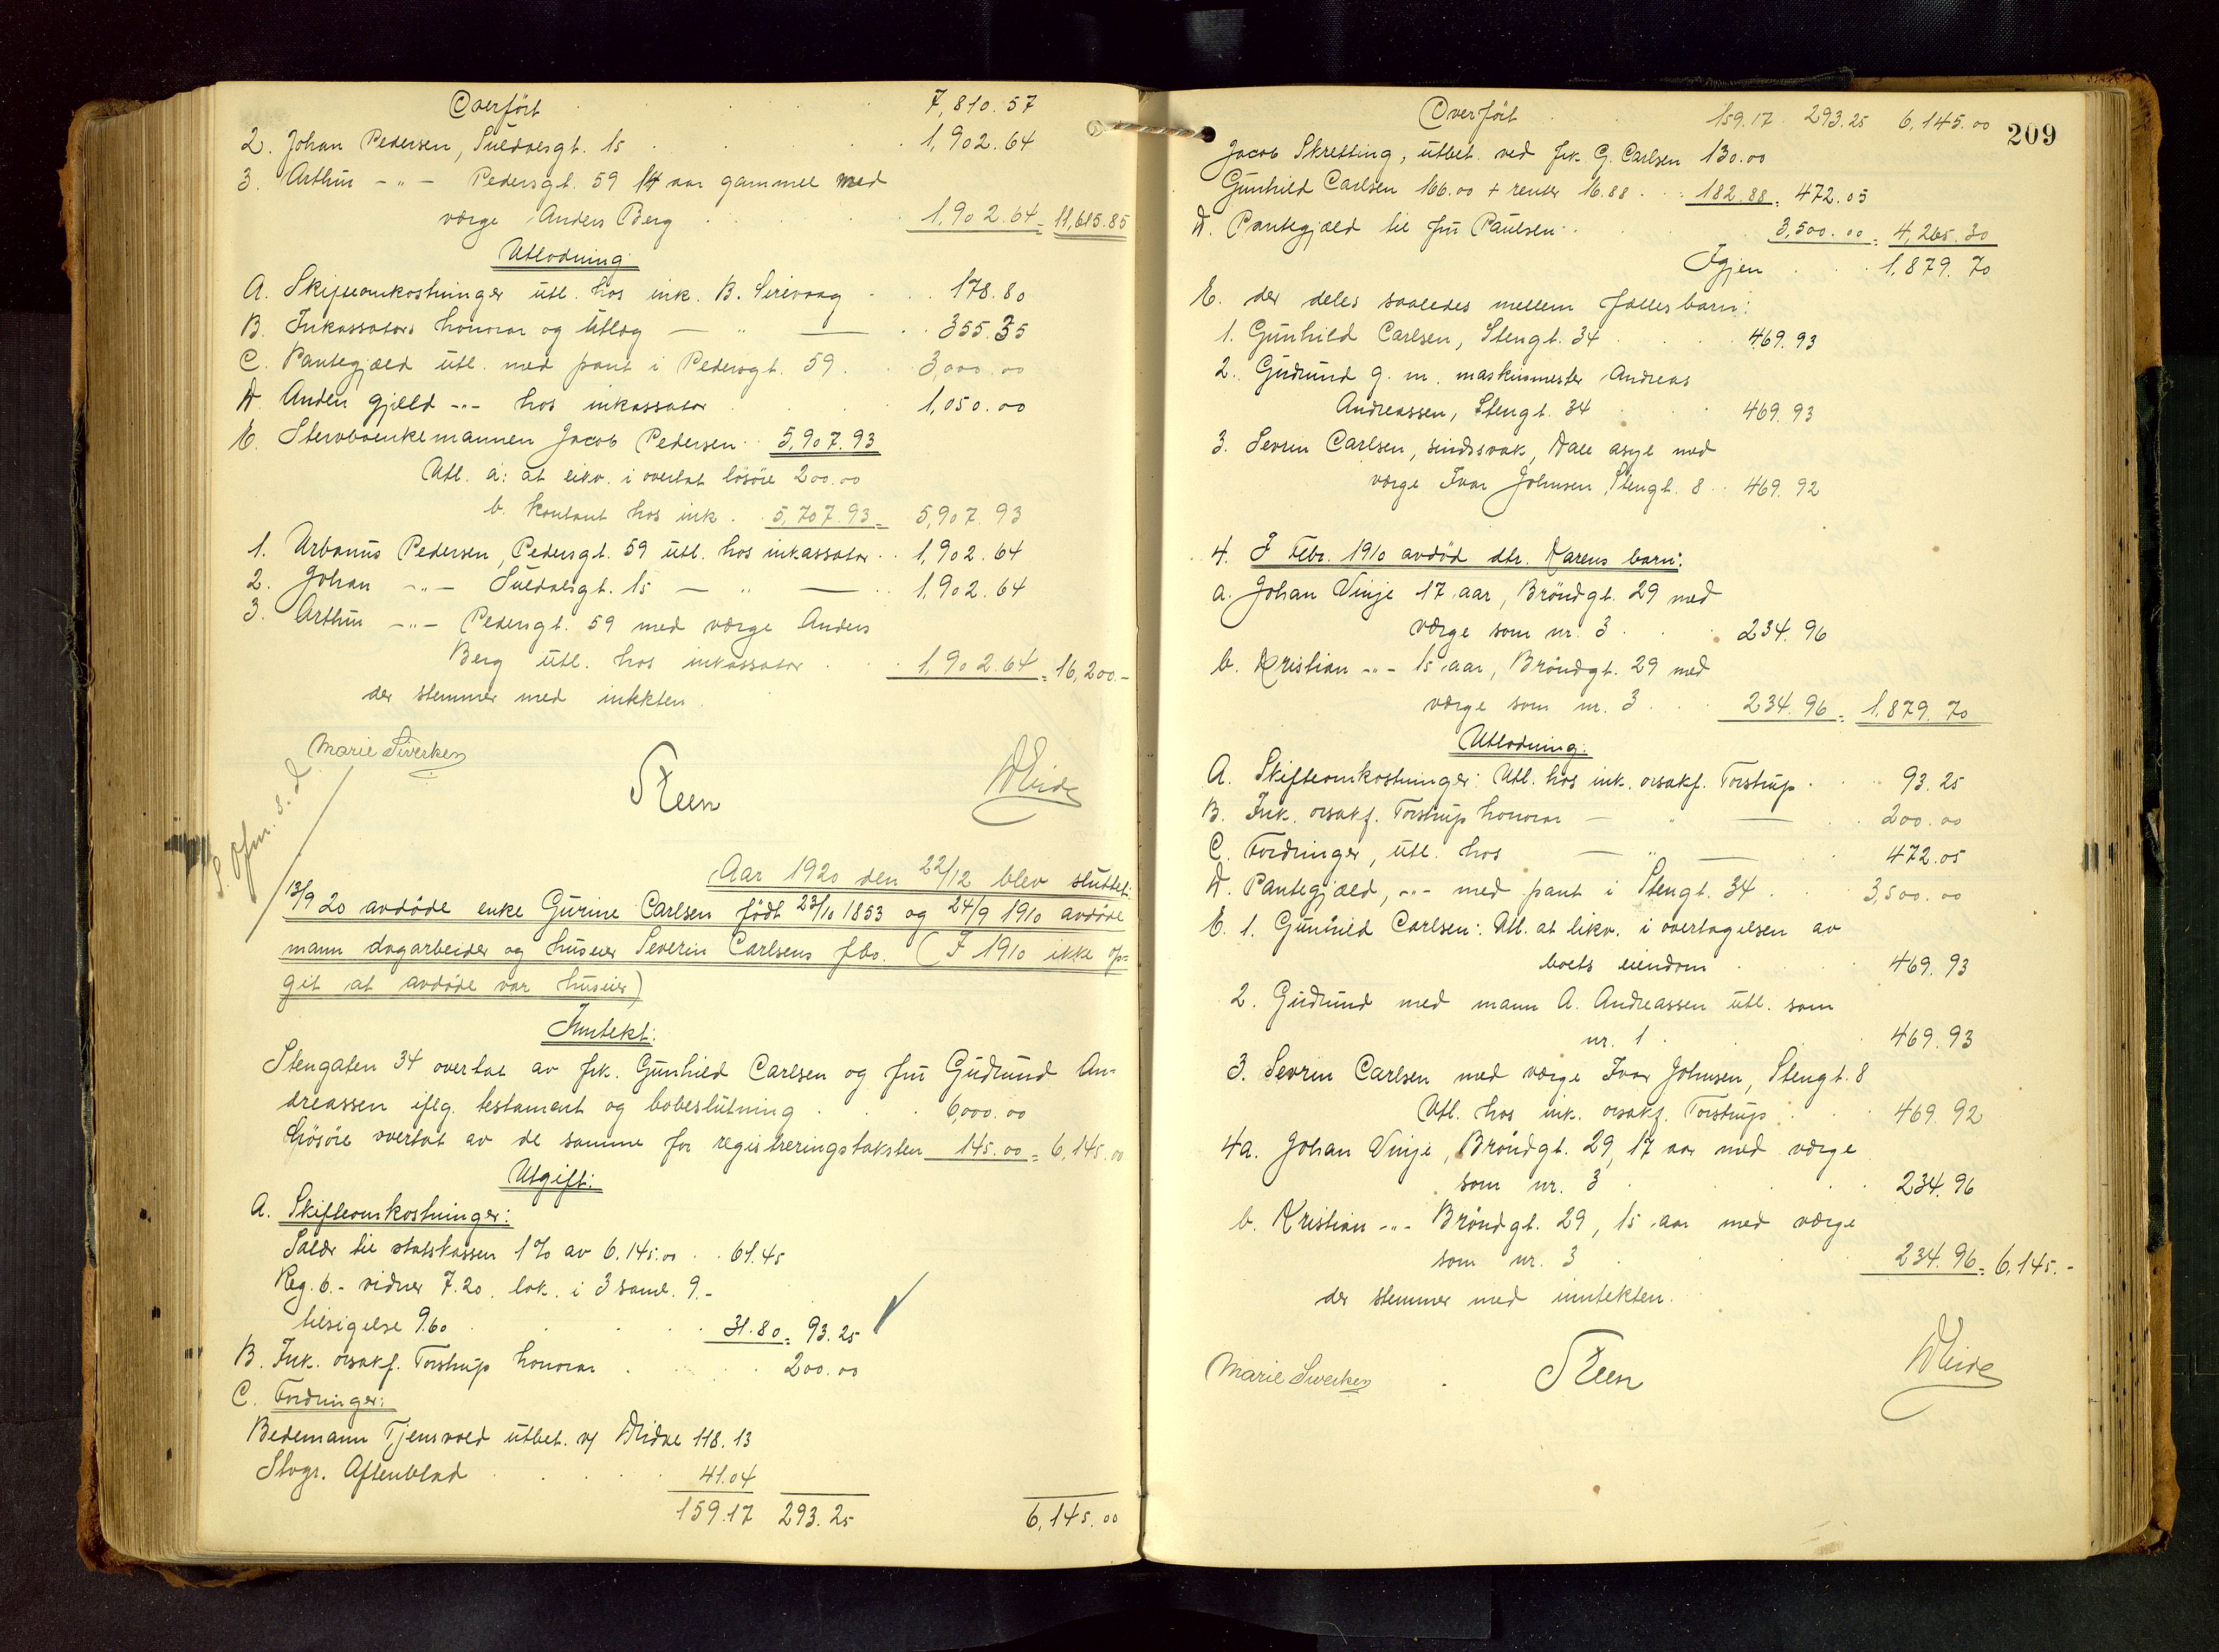 Overført 7,810.57
2. Johan Pedersen, Suldalsgt. 15 1,902.64
3. Arthur -"- Pedersgt. 59 14 aar gammel med
værge Anders Berg 1,902.64 = 11,615.85
Utlodning:
A. Skifteomkostninger utl. hos ink. B. Sirevaag 178.80
B. Inkassators honorar og utlæg — " — 355.35
C. Pantegjæld utl. med pant i Pedersgt. 59 3,000.00
D. Anden gjeld -"- hos inkassator 1,050.00
E. Stervboenkemannen Jacob Pedersen 5,907.93
Utl. a: at likv. i overtat løsøre 200.00
b. kontant hos ink. 5,707.93 = 5,907.93
1. Urbanus Pedersen, Pedersgt. 59 utl. hos inkassator 1,902.64
2. Johan -"- Suldalsgt. 15 — " — 1,902.64
3. Arthur -"- Pedersgt. 59 med værge Anders
Berg utl. hos inkassator 1,902.64 = 16,200.-
der stemmer med inkkten.
Marie Siverksen
Steen
Aar 1920 den 22/12 blev sluttet:
13/9 20 avdøde enke Gurine Carlsen født 23/10 1853 og 24/9 1910 avdøde
mann dagarbeider og huseier Severin Carlsens fbo. (I 1910 ikke op=
git at avdøde var huseier)
Inntekt:
Stengaten 34 overtat av frk. Gunhild Carlsen og fru Gudrund An-
dreassen iflg. testament og bobeslutning 6,000.00
Løsøre overtat av de samme for registreringstaksten 145.00 = 6,145.00
Utgift:
A. Skifteomkostninger:
Salær til statskassen 1% av 6.145.00 61.45
Reg. 6.- vidner 7.20. lok. i 3 saml. 9.-
tilsigelse 9.60 31.80 = 93.25
B. Ink. orsakf. Torstrup honorar 200.00
C. Fordringer:
Bedemann Tjensvold utbet. v/ 118.13
Stvgr. Aftenblad 41.04
159.17 293.25 6,145.00
209
Overført 159.17 293.25 6,145.00
Jacob Skretting, utbet. ved frk. G. Carlsen 130.00
Gunhild Carlsen 166.00 + renter 16.88 182.88 = 472.05
D. Pantegjæld til fru Paulsen 3,500.00 = 4,265.30
Igjen 1,879.70
E. der deles saaledes mellem fællesbarn:
1. Gunhild Carlsen, Stengt. 34 469.93
2. Gudrund g. m. maskinmester Andreas
Andreassen, Stengt. 34 469.93
3. Sevrin Carlsen, sindssvak, Dale asyl med
værge Ivar Johnsen, Stengt. 8 469.92
4. I Febr. 1910 avdød dtr. Karens barn:
a. Johan Vinje 17 aar, Brøndgt. 29 med
værge som nr. 3 234.96
b. Kristian -"- 15 aar, Brøndgt. 29 med
værge som nr. 3 234.96 = 1,879.70
Utlodning:
A. Skifteomkostninger: Utl. hos ink. orsakf. Torstrup 93.25
B. Ink. orsakf. Torstrup honorar — " — 200.00
C. Fordringer, utl. hos — " — 472.05
D. Pantegjæld, -"- med pant i Stengt. 34 3,500.00
E. 1. Gunhild Carlsen: Utl. at likv. i overtagelsen av
boets eiendom 469.93
2. Gudrund med mann A. Andreassen utl. som
nr. 1 469.93
3. Sevrin Carlsen med værge Ivar Johnsen, Stengt. 8
Utl. hos ink. orsakf. Torstrup 469.92
4a. Johan Vinje, Brøndgt. 29, 17 aar med værge
som nr. 3 234.96
b. Kristian -"- Brøndgt. 29, 15 aar med værge
som nr. 3 234.96 = 6,145.-
der stemmer med inntekten.
Marie Siverksen
Steen